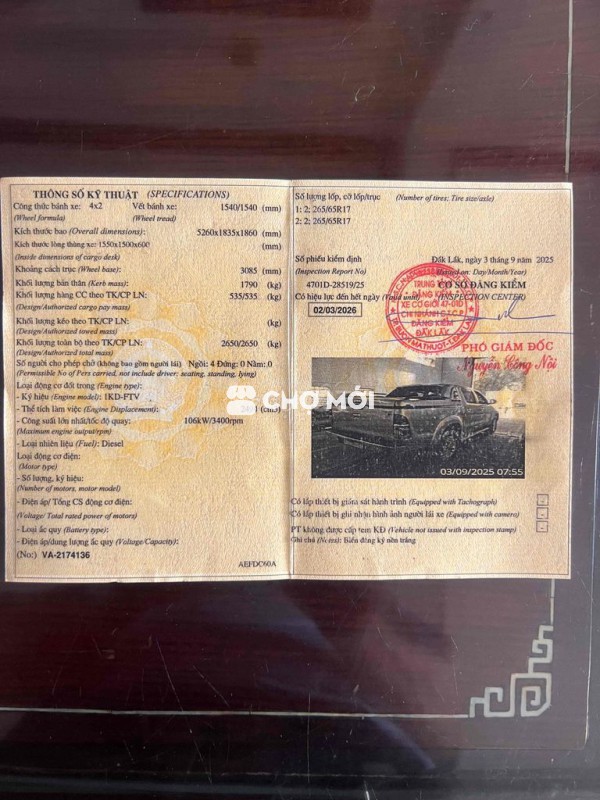 THÔNG SỐ KỸ THUẬT (SPECIFICATIONS)
Công thức bánh xe: 4x2 Vết bánh xe: 1540/1540 (mm)
(Wheel formula) (Wheel tread)
Kích thước bao (Overall dimensions): 5260x1835x1860 (mm)
Kích thước lòng thùng xe: 1550x1500x600 (mm)
(Inside dimensions of cargo desk)
Khoảng cách trục (Wheel base): 3085 (mm)
Khối lượng bản thân (Kerb mass): 1790 (kg)
Khối lượng hàng CC theo TK/CP LN: 535/535 (kg)
(Design/Authorized cargo pay mass)
Khối lượng kéo theo TK/CP LN: (kg)
(Design/Authorized towed mass)
Khối lượng toàn bộ theo TK/CP LN: 2650/2650 (kg)
(Design/Authorized total mass)
Số người cho phép chở (không bao gồm người lái) Ngồi: 4 Đứng: 0 Nằm: 0
(Permissible No of Pers carried, not include driver: seating, standing, lying)
Loại động cơ đốt trong (Engine type):
- Ký hiệu (Engine model): 1KD-FTV
- Thể tích làm việc (Engine Displacement): (cm3)
- Công suất lớn nhất/tốc độ quay: 106kW/3400rpm
(Maximum engine output/rpm)
- Loại nhiên liệu (Fuel): Diesel
Loại động cơ điện:
(Motor type)
- Số lượng, ký hiệu:
(Number of motors, motor model)
- Điện áp/ Tổng CS động cơ điện:
(Voltage/ Total rated power of motors)
- Loại ắc quy (Battery type):
- Điện áp/dung lượng ắc quy (Voltage/Capacity):
(No:) VA-2174136
AEFDC60A
Số lượng lốp, cỡ lốp/trục (Number of tires: Tire size/axle)
1: 2; 265/65R17
2: 2; 265/65R17
Số phiếu kiểm định Đắk Lắk, ngày 3 tháng 9 năm 2025
(Inspection Report No) Issued on: Day/Month/Year)
4701D-28519/25 CƠ SỞ ĐĂNG KIỂM
Có hiệu lực đến hết ngày (Valid until) (INSPECTION CENTER)
02/03/2026
TRUNG TÂM
ĐĂNG KIỂM
XE CƠ GIỚI 47-01D
CHI NHÁNH C.T.C.P
ĐĂNG KIỂM
ĐẮK LẮK
PHÓ GIÁM ĐỐC
Nguyễn Công Nội
CHỢ MỚI
03/09/2025 07:55
Có lắp thiết bị giám sát hành trình (Equipped with Tachograph)
Có lắp thiết bị ghi nhận hình ảnh người lái xe (Equipped with camera)
PT không được cấp tem KĐ (Vehicle not issued with inspection stamp)
Ghi chú (Notes): Biển đăng ký nền trắng